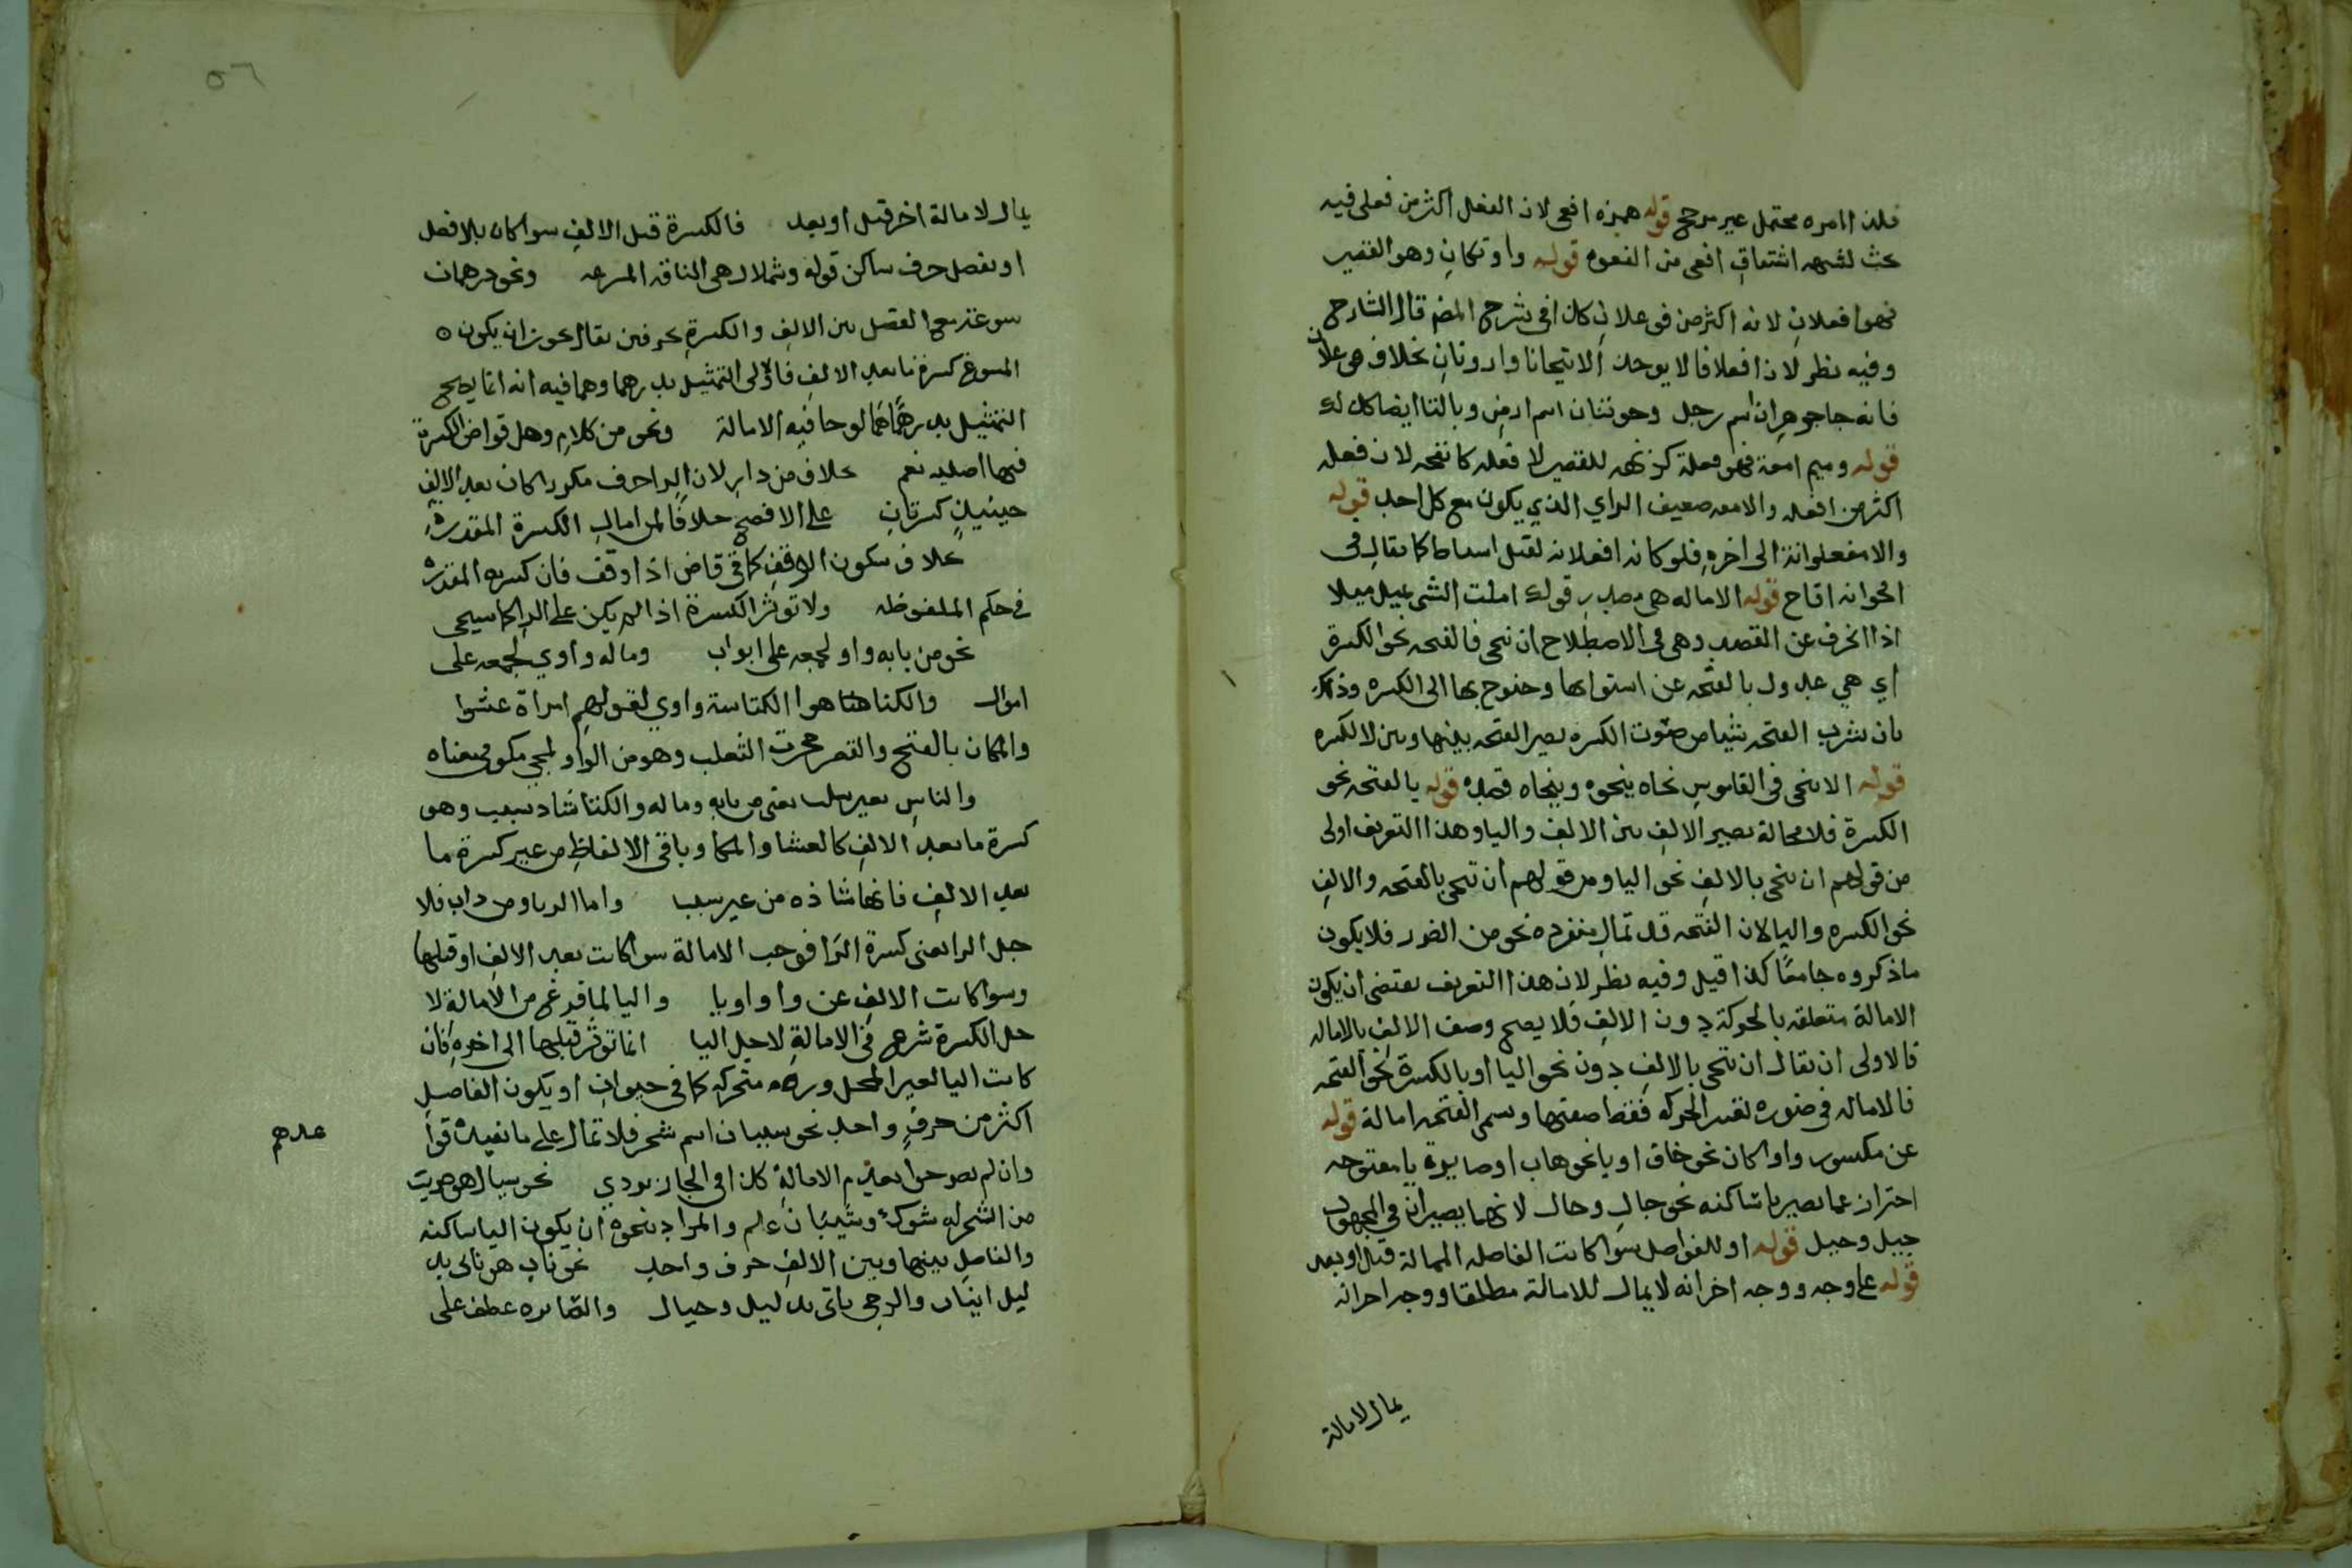 فلذا امره محتمل غير مرجح قوله همزه افعى لان افعل اكثر من فعلى فيه
بحث لشبهه اشتقاق افعى من الفعوه قوله واو تكان وهو القصير
فهوا فعلان لانه اكثر من فوعلان كان في شرح المض قال الشارح
وفيه نظر لان افعلانا لا يوجد الا انبجانا وارونان بخلاف فوعلان
فانه جا جوهران اسم رجل وحوتنان اسم ارض وبالتا ايضا كذلك
قوله وميم امعة فهو فعلة كزنمه للقصير لا فعله كانفحه لان فعله
اكثر من افعله والامعه ضعيف الراي الذي يكون مع كل احد قوله
والا فعلوانة الى اخره فلو كانه افعلانه لقيل اساط كما يقال في
اقحوانه اقاح قوله الاماله هي مصدر قولك املت الشي عيل ميلا
اذا انحرف عن القصد وهي في الاصطلاح ان تنحى فالفتحه نحو الكسرة
اي هي عدول بالفتحه عن استوايها وجنوح بها الى الكسره وذلك
بان تشرب الفتحه شيا من صوت الكسره يصير الفتحه بينها وبين الالكسره
قوله الا تنحى في القاموس نحاه ينحوه وينحاه قصده قوله بالفتحه نحو
الكسرة فلا محالة يصير الالف بين الالف واليا وهذا التعريف اولى
من قولهم ان ينحى بالالف نحو اليا ومن قولهم ان تنحى بالفتحه والالف
نحو الكسره واليا لان الفتحه قد تمال منفرده نحو من الضرر فلا يكون
ماذكروه جامعًا كذا قيل وفيه نظر لان هذا التعريف يقتضى ان يكون
الامالة متعلقه بالحركة دون الالف فلا يصح وصف الالف بالاماله
فالاولى ان يقال ان تنحى بالالف دون نحو اليا او بالكسرة نحو الفتحه
فالاماله في ضوره تغير الحركه فقط صفتها وسمى الفتحه امالة قوله
عن مكسور واوا كان نحو خاف او يا نحو هاب او صايره يا مفتوحه
احتراز عما يصير يا ساكنه نحو جال وحال لانهما يصيران في المجهول
جيل وحيل قوله او للفواصل سوا كانت الفاصله الممالة قبل او بعد
قوله على وجه ووجه اخر انه لا يمال للامالة مطلقا ووجه اخر انه
يمال لامالة
٥٦
يمال لامالة اخر قبل او بعد فالكسرة قبل الالف سوا كان بلا فصل
او بفصل حرف ساكن قوله وشملال هى الناقه المسرعه ونحو درهمان
سوغه مع الفصل بين الالف والكسرة بحرفين يقال يجوز ان يكون ٥
المسوغ كسرة ما بعد الالف فالاولى التمثيل بدرهما وهما فيه انه انما يصح
التمثيل بدرهمًا همًا لو جا فيه الامالة ونحو من كلام وهل قواض الكسرة
فيها اصليه نعم بخلاف من دار لان الرا حرف مكرر كان بعد الالف
حينيذٍ كسرتان على الافصح خلافًا لمن امال الكسرة المقدره
بخلاف سكون الوقف كما في قاض اذا وقف فان كسرته المقدره
في حكم الملفوظه ولا توثر الكسرة اذا لم يكن على الرا كما سيجى
نحو من بابه واو لجمعه على ابواب وماله واوي لجمعه على
اموال والكنا هنا هو الكناسة واوي لقولهم امراة عشوا
والمكان بالفتح والقصر جحرت الثعلب وهو من الواو لمجي مكو في معناه
والناس بغير سبب يعنى من بابه وماله والكنا شاد بسبب وهو
كسرة ما بعد الالف كالعشا والمكا وباقي الالفاظ من غير كسرة ما
بعد الالف فانها شاذه من غير سبب واما الربا ومن داب فلا
جل الرا يعنى كسرة الرا فوجب الامالة سوا كانت بعد الالف او قبلها
وسوا كانت الالف عن واو او يا واليا لما فرغ من الامالة لا
جل الكسرة شرع في الامالة لاجل اليا انما توثر قبلها الى اخره فان
كانت اليا لغير المحل وره متحركه كما في حيوان او يكون الفاصل
اكثر من حرفٍ واحد نحو سيبان اسم شجر فلا تمال على ما يفيده قوا
عدهم
وان لم يصرحوا بعدم الامالة كذا في الجاربردي نحو سيال هو ضرب
من الشجر له شوك وشيبان علم والمراد بنحوه ان يكون اليا ساكنه
والفاصل بينها وبين الالف حرف واحد نحو ناب هو ناى بد
ليل انياب والرحى ياى بدليل وحيال والصايره عطف على